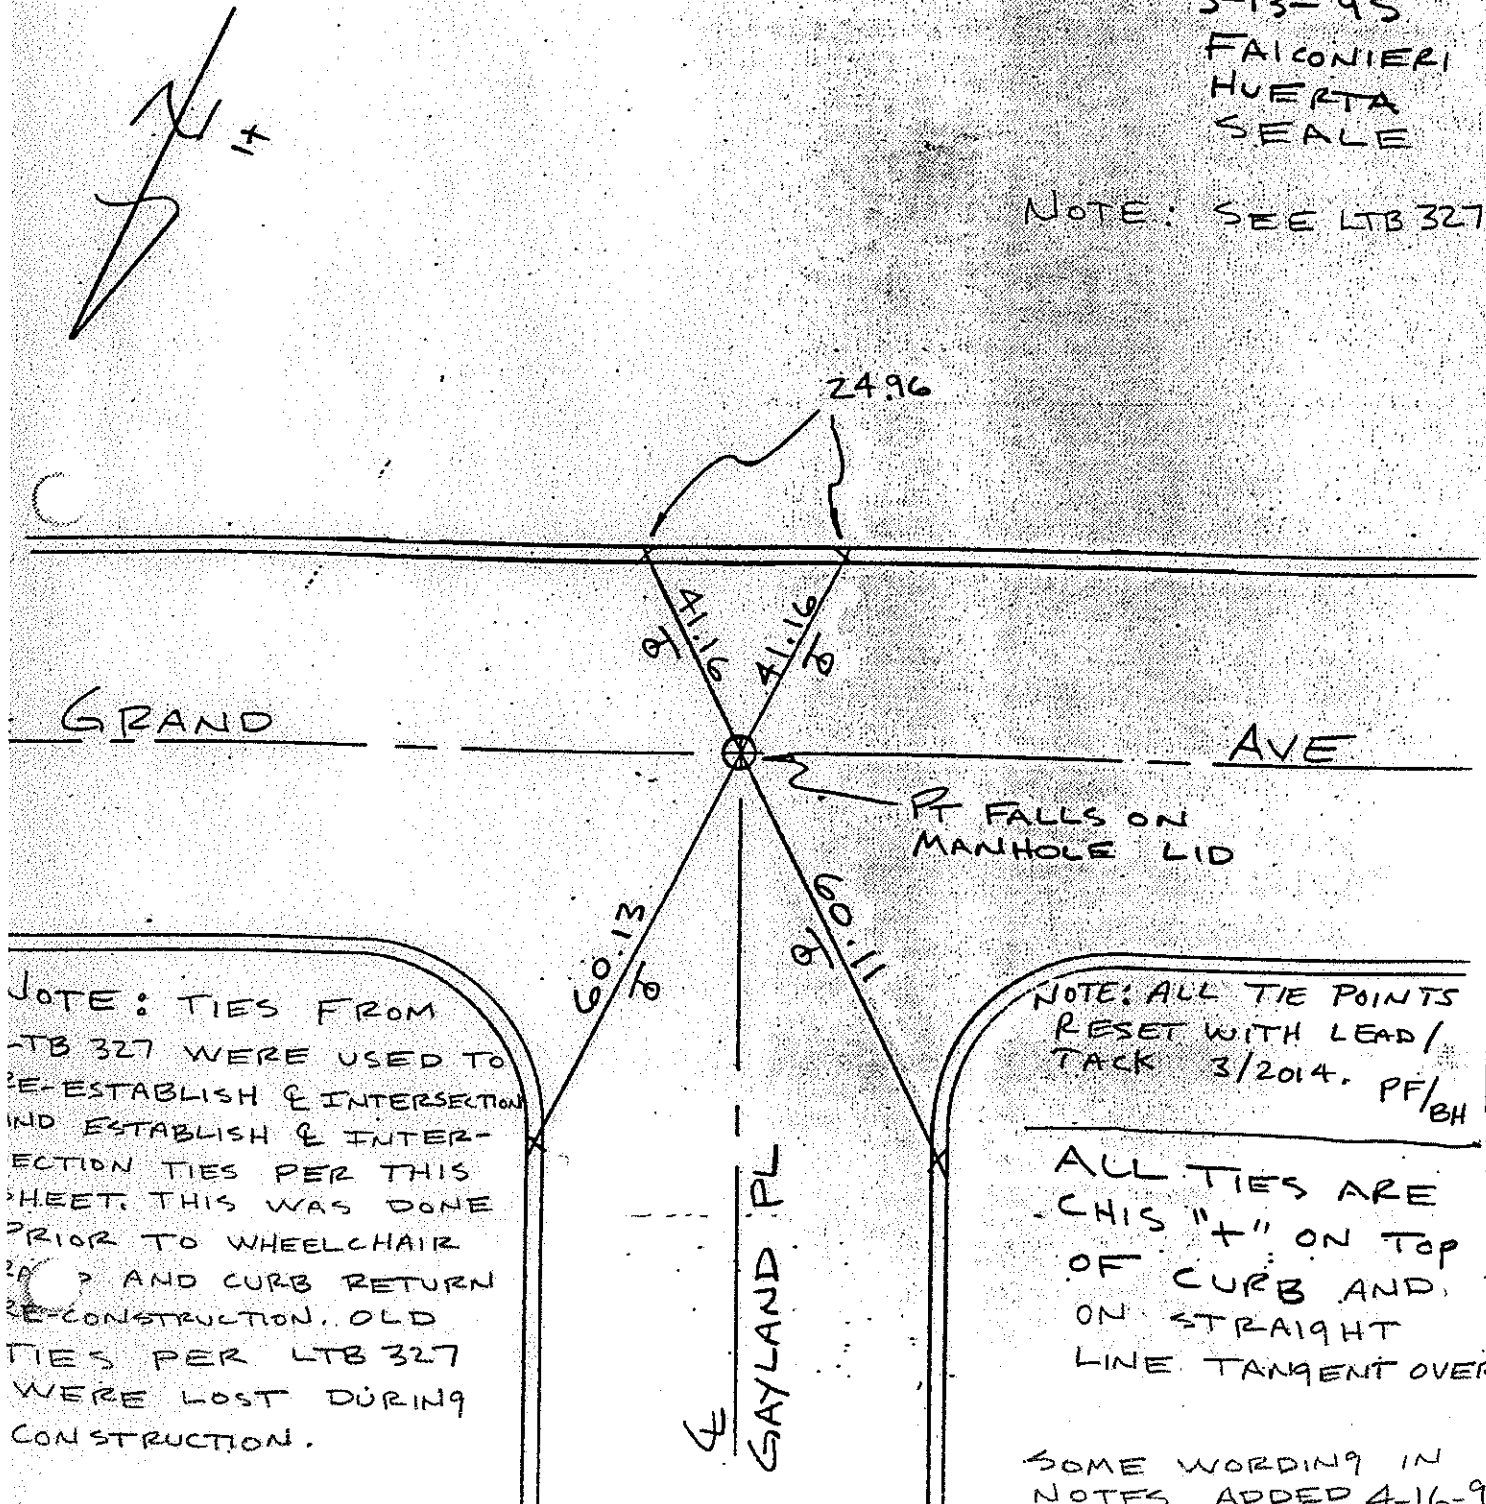 3-13-95
FALCONIERI
HUERTA
SEALE
NOTE: SEE LTB 327
N
24.96
41.16
41.16
GRAND AVE
PT FALLS ON
MANHOLE LID
60.13
60.11
NOTE: TIES FROM
LTB 327 WERE USED TO
RE-ESTABLISH ℄ INTERSECTION
AND ESTABLISH ℄ INTER-
SECTION TIES PER THIS
SHEET. THIS WAS DONE
PRIOR TO WHEELCHAIR
AND CURB RETURN
RE-CONSTRUCTION. OLD
TIES PER LTB 327
WERE LOST DURING
CONSTRUCTION.
℄ GAYLAND PL
NOTE: ALL TIE POINTS
RESET WITH LEAD/
TACK 3/2014. PF/BH
ALL TIES ARE
CHIS "+" ON TOP
OF CURB AND
ON STRAIGHT
LINE TANGENT OVER
SOME WORDING IN
NOTES ADDED 4-16-9